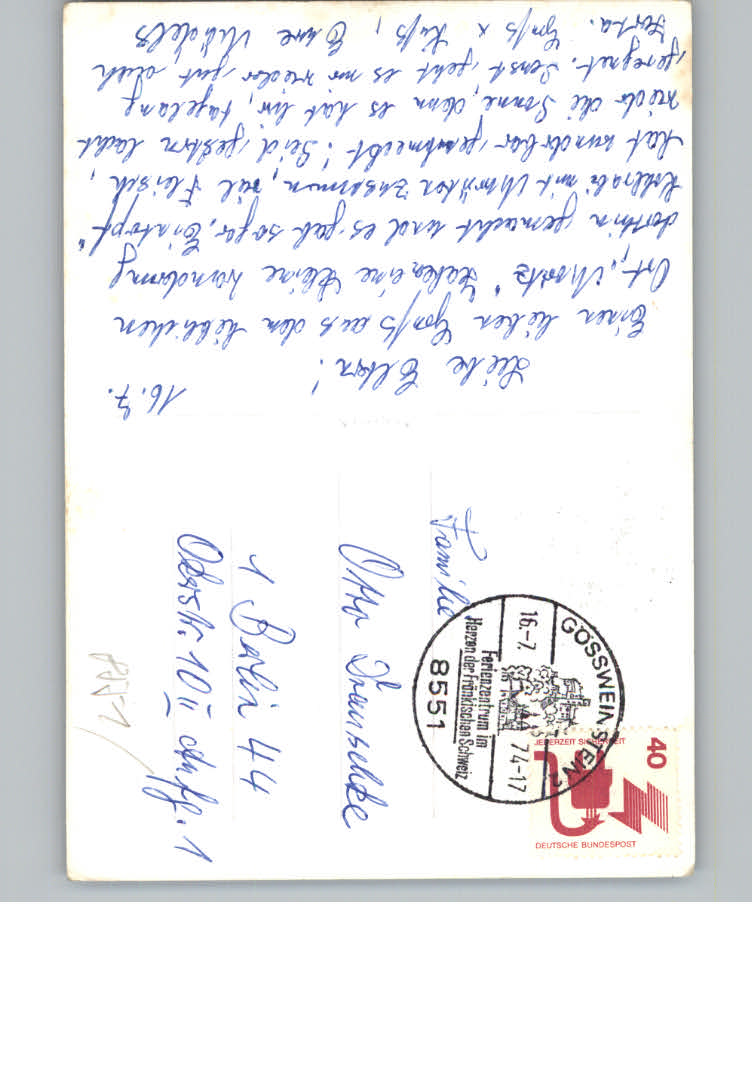 16.7.
Liebe Eltern!
Einen lieben Gruß aus dem lieblichen
Ort „ “ Haben eine kleine Wandrung
dorthin gemacht und es gab sogar „Eintopf“
Kohlrabi mit Mohrrüben zusammen, viel Fleisch,
hat wunderbar geschmeckt! Seid gestern lacht
wieder die Sonne, denn es hat hier tagelang
geregnet. Sonst geht es mir wieder gut auch
Herta. Gruß x Kuß, Eure Mädels
Familie
Otto
1 Berlin 44
Oderstr. 10 II Aufg. 1
GÖSSWEINSTEIN 2
16.-7. 74-17
Ferienzentrum im
Herzen der Fränkischen Schweiz
8551
40
JEDERZEIT SICHERHEIT
DEUTSCHE BUNDESPOST